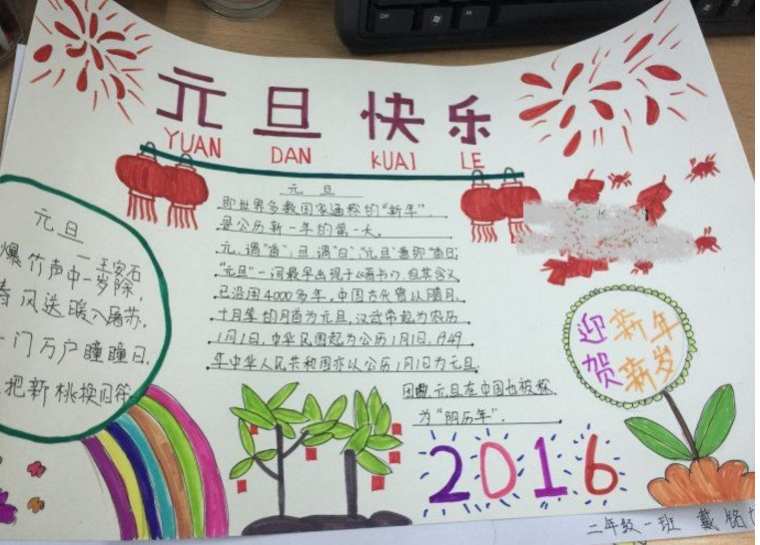 元旦快乐
YUAN DAN KUAI LE
元旦
即世界多数国家通称的“新年”，
是公历新一年的第一天。
元，谓“首”；旦，谓“日”；“元旦”意即“首日”
“元旦”一词最早出现于《晋书》，但其含义
已沿用4000多年，中国古代曾以腊月、
十月等的月首为元旦，汉武帝起为农历
1月1日，中华民国起为公历1月1日，1949
年中华人民共和国亦以公历1月1日为元旦，
元旦在中国也被称
为“阳历年”．
元旦
—王安石
爆竹声中一岁除，
春风送暖入屠苏．
门万户瞳瞳日，
把新桃换旧符
迎新年
贺新岁
2016
二年级一班 戴铭